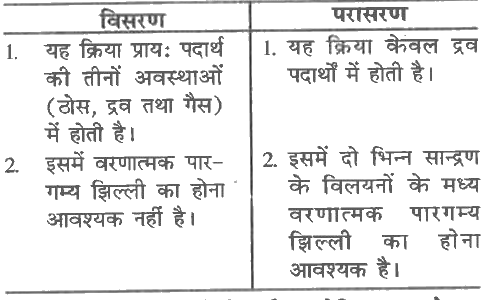 विसरण
परासरण
1. यह क्रिया प्रायः पदार्थ
की तीनों अवस्थाओं
(ठोस, द्रव तथा गैस)
में होती है।
2. इसमें वरणात्मक पार-
गम्य झिल्ली का होना
आवश्यक नहीं है।
1. यह क्रिया केवल द्रव
पदार्थों में होती है।
2. इसमें दो भिन्न सान्द्रण
के विलयनों के मध्य
वरणात्मक पारगम्य
झिल्ली का होना
आवश्यक है।